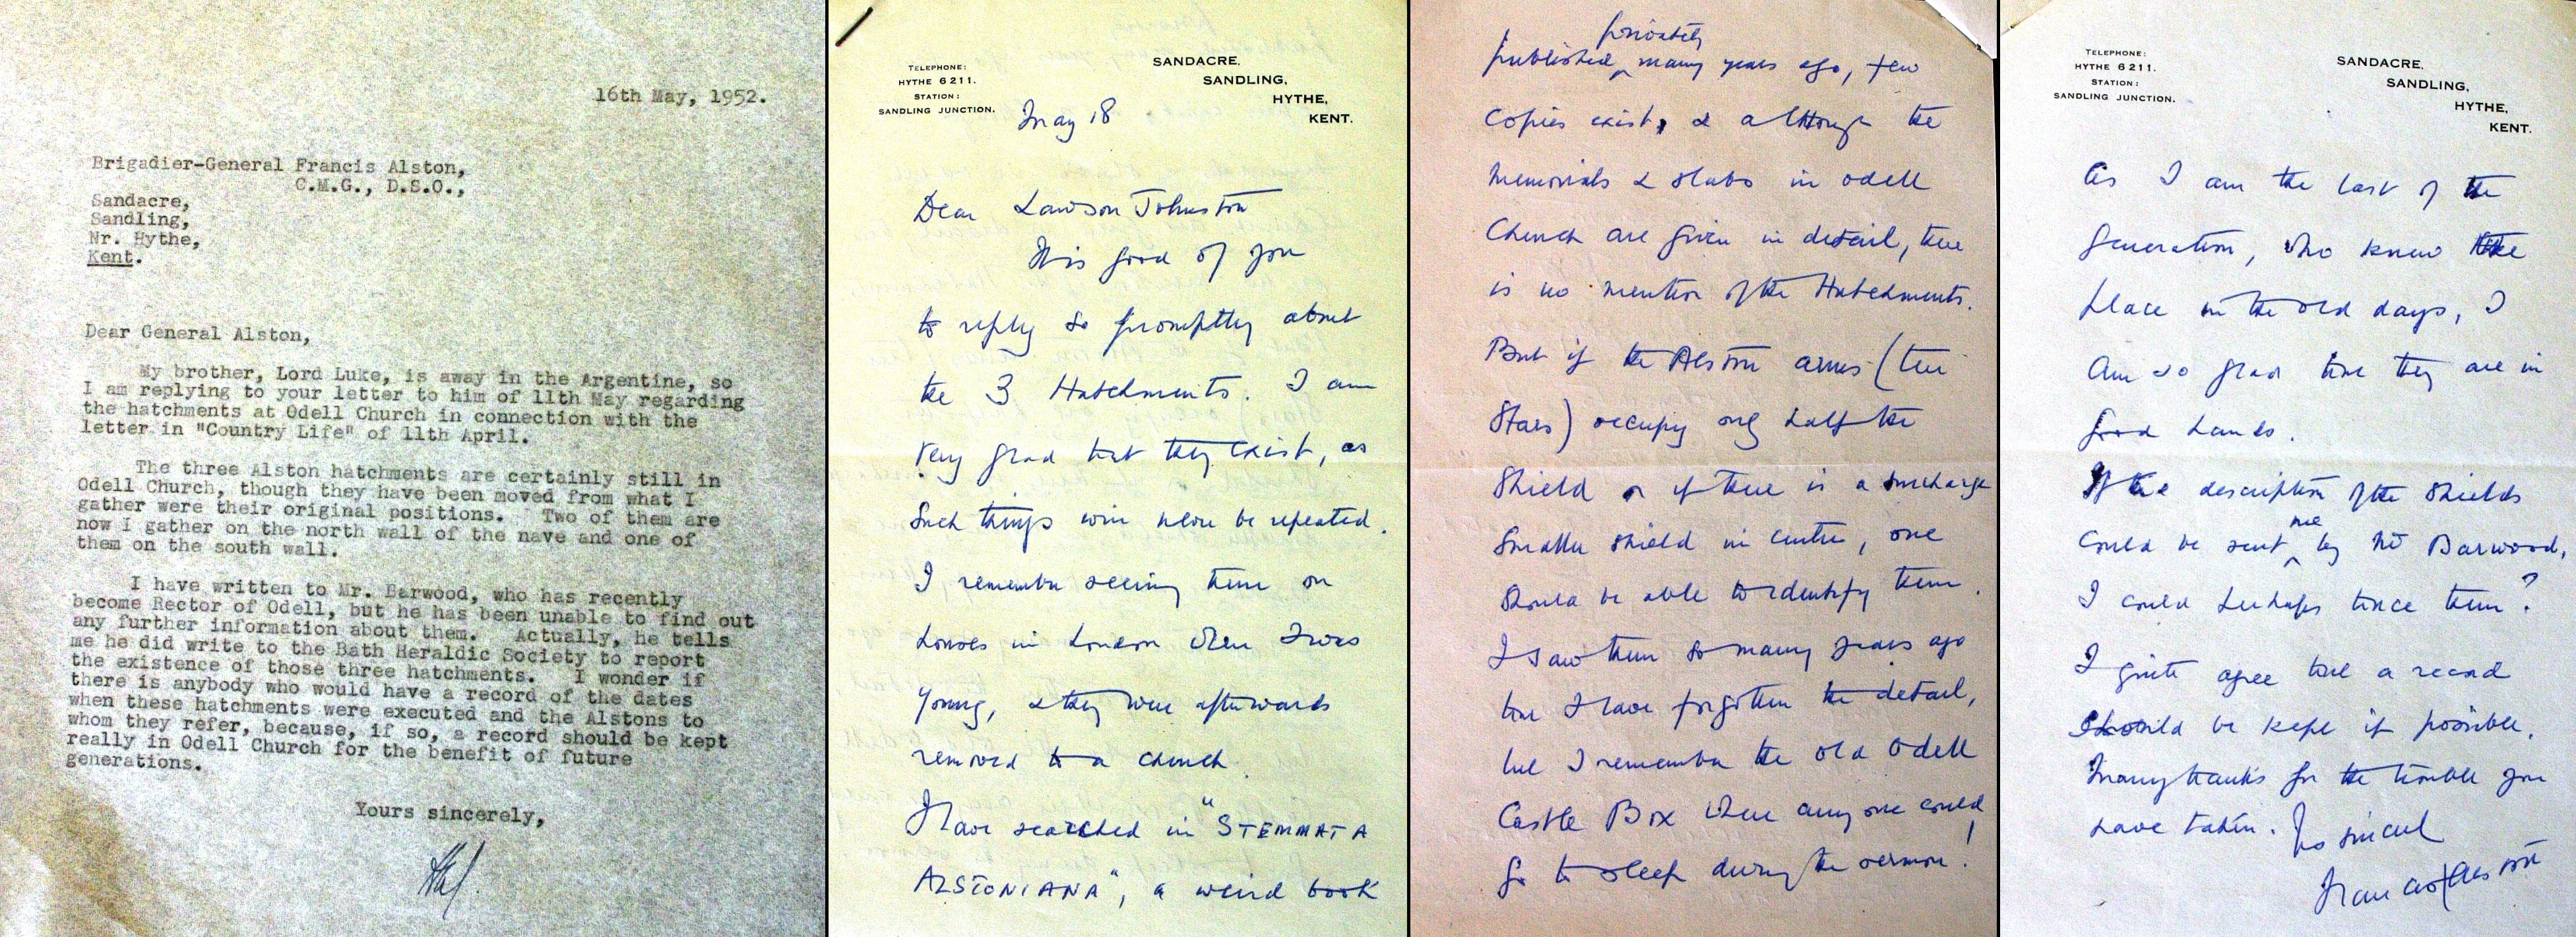 16th May, 1952.
Brigadier-General Francis Alston,
C.M.G., D.S.O.,
Sandacre,
Sandling,
Nr. Hythe,
Kent.
Dear General Alston,
My brother, Lord Luke, is away in the Argentine, so
I am replying to your letter to him of 11th May regarding
the hatchments at Odell Church in connection with the
letter in "Country Life" of 11th April.
The three Alston hatchments are certainly still in
Odell Church, though they have been moved from what I
gather were their original positions. Two of them are
now I gather on the north wall of the nave and one of
them on the south wall.
I have written to Mr. Barwood, who has recently
become Rector of Odell, but he has been unable to find out
any further information about them. Actually, he tells
me he did write to the Bath Heraldic Society to report
the existence of those three hatchments. I wonder if
there is anybody who would have a record of the dates
when these hatchments were executed and the Alstons to
whom they refer, because, if so, a record should be kept
really in Odell Church for the benefit of future
generations.
Yours sincerely,
TELEPHONE:
HYTHE 6211.
STATION:
SANDLING JUNCTION.
SANDACRE,
SANDLING,
HYTHE,
KENT.
May 18
Dear Lawson Johnston
It is good of you
to reply so promptly about
the 3 Hatchments. I am
very glad that they exist, as
Such things will never be repeated.
I remember seeing them on
houses in London when I was
young, & they were afterwards
removed to a church.
I have searched in "STEMMATA
ALSTONIANA", a weird book
privately
published many years ago, few
copies exist, & although the
memorials & slabs in Odell
Church are given in detail, there
is no mention of the Hatchments.
But if the Alston arms (ten
Stars) occupy only half the
Shield or if there is a surcharge
smaller shield in centre, one
should be able to identify them.
I saw them so many years ago
that I have forgotten the detail,
but I remember the old Odell
Castle Box where any one could
go to sleep during the sermon!
TELEPHONE:
HYTHE 6211.
STATION:
SANDLING JUNCTION.
SANDACRE,
SANDLING,
HYTHE,
KENT.
As I am the last of the
generation, who knew the
place in the old days, I
am so glad that they are in
good hands.
If the description of the Shields
me
could be sent by Mr Barwood,
I could perhaps trace them?
I quite agree that a record
should be kept if possible.
Many thanks for the trouble you
have taken. Yrs sincerely
Francis Alston